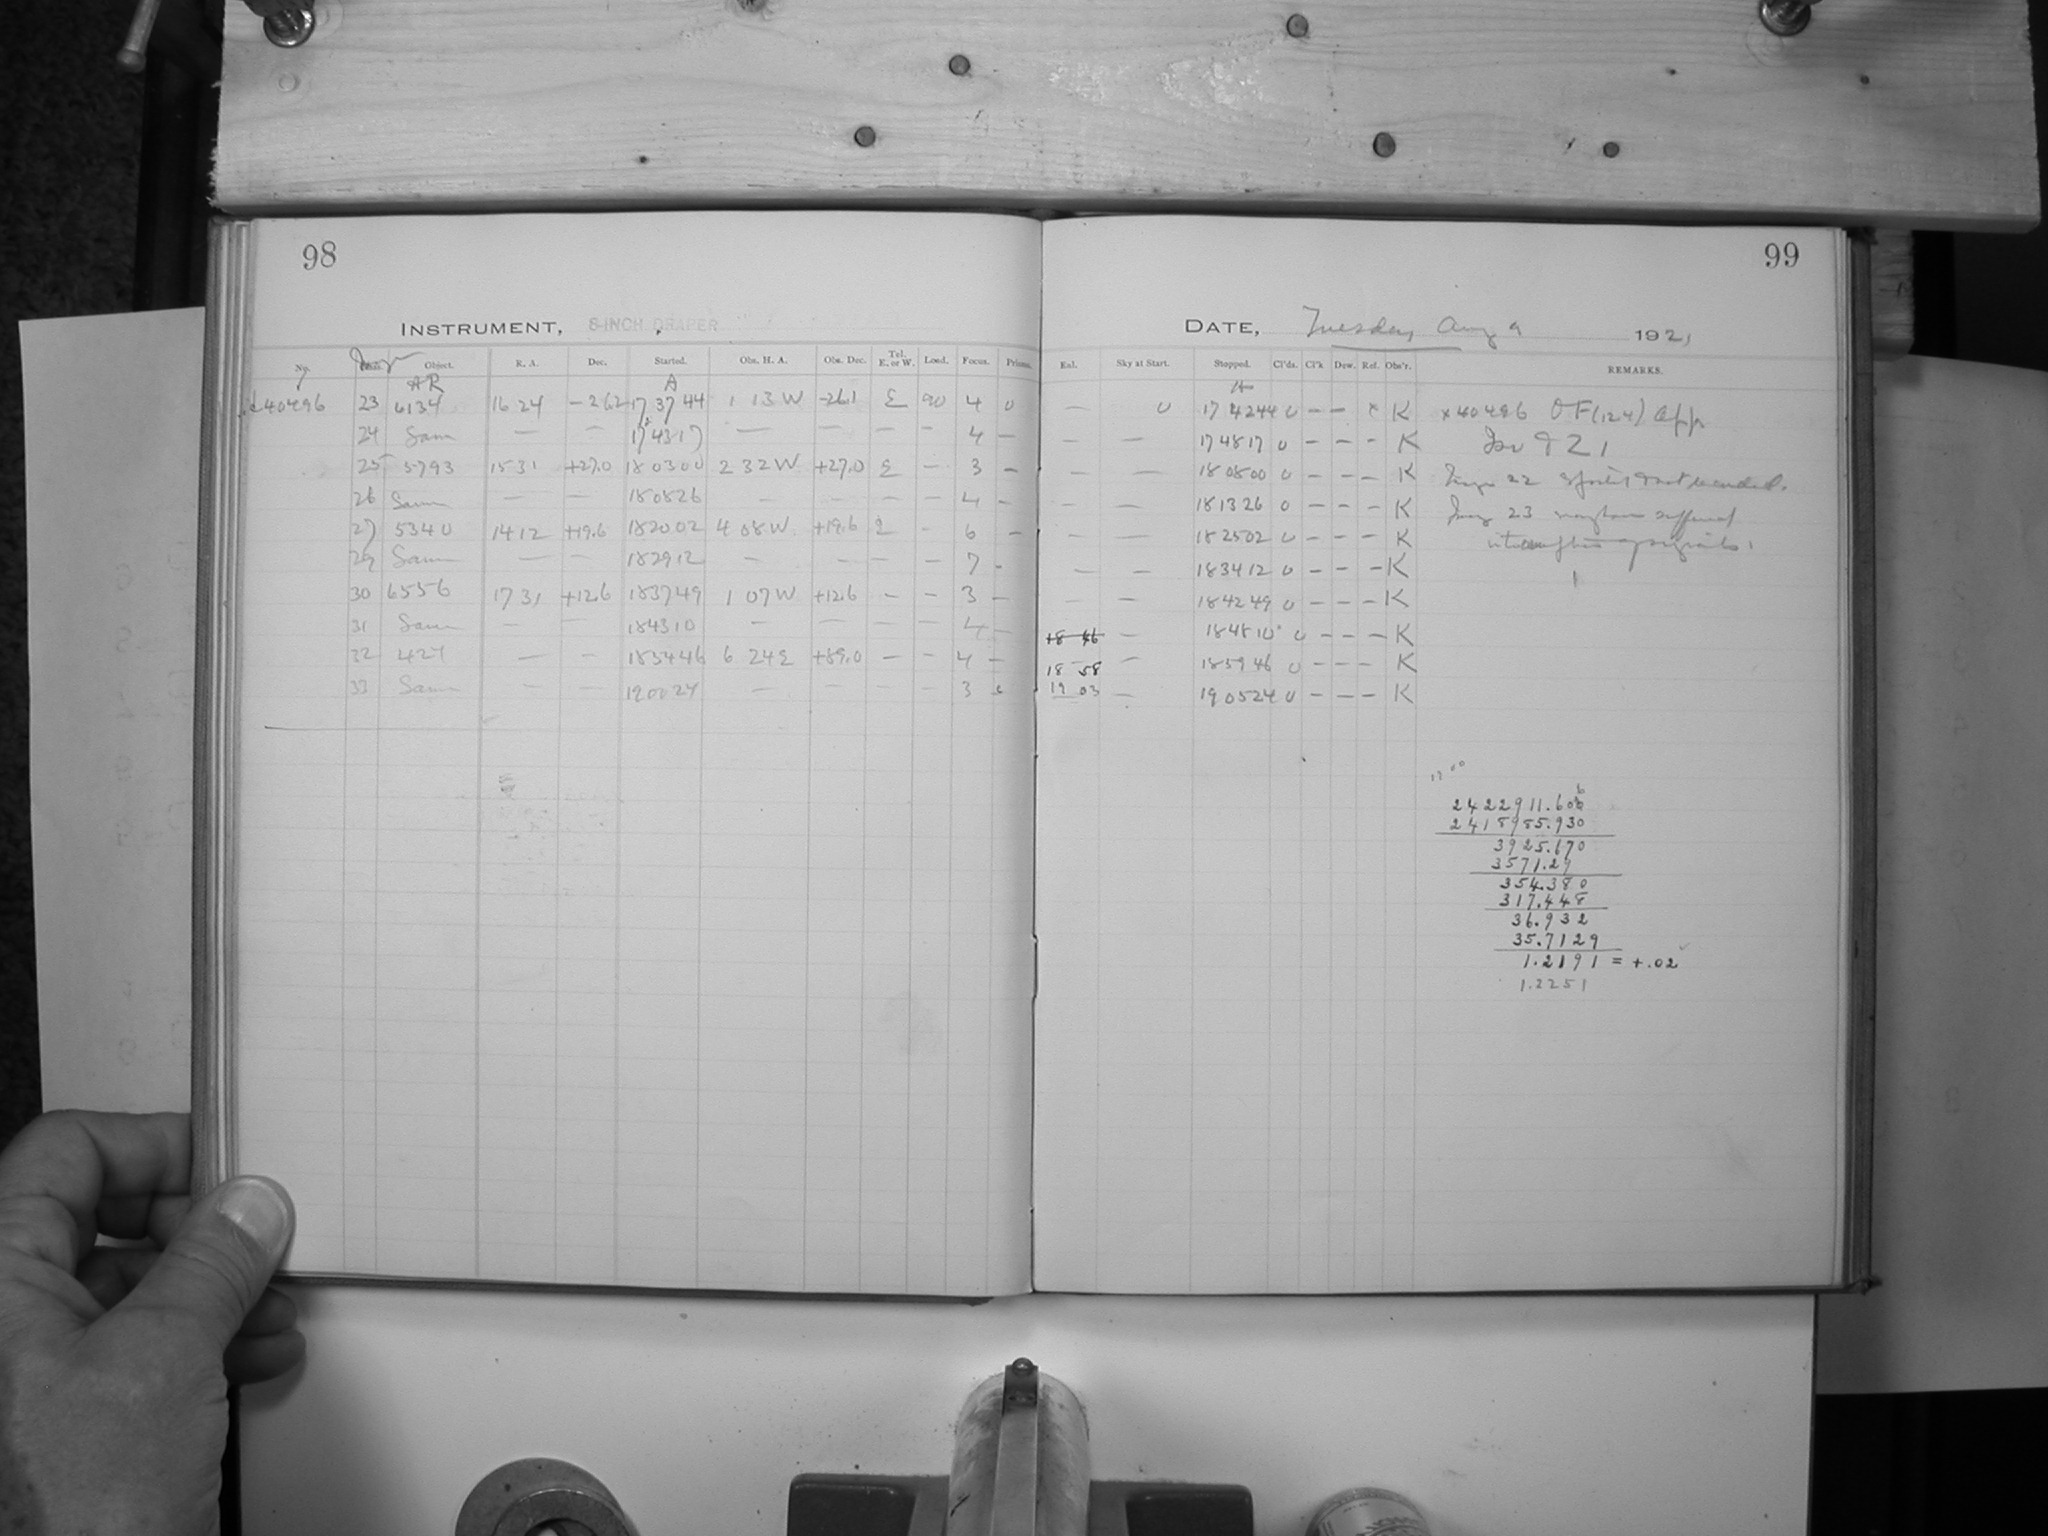 98
INSTRUMENT, 8-INCH DRAPER
No. Object. R. A. Dec. Started. Obs. H. A. Obs. Dec. Tel. E. or W. Load. Focus. Prisms.
AR A
40496 23 6134 16 24 -26.2 17 37 44 1 13 W -26.1 E 90 4 0
24 Same — — 17 43 17 — — - - 4 -
25 5793 15 31 +27.0 18 03 00 2 32 W +27.0 E - 3 -
26 Same — — 18 08 26 — — - - 4 -
27 5340 14 12 +19.6 18 20 02 4 08 W. +19.6 E - 6 -
29 Same — — 18 29 12 — — - - 7 -
30 6556 17 31 +12.6 18 37 49 1 07 W +12.6 - - 3 -
31 Same — — 18 43 10 — — - - 4 -
32 427 — — 18 54 46 6 24 E +89.0 - - 4 -
33 Same — — 19 00 24 — — - - 3
99
DATE, Tuesday Aug 9 1921
Enl. Sky at Start. Stopped. Cl'ds. Cl'k Dew. Rel. Obs'r. REMARKS.
— 0 17 42 44 0 - - x K x40496 OF(124) App
— — 17 48 17 0 - - - K Iso 921
— — 18 08 00 0 - - - K 22 not
— — 18 13 26 0 - - - K 23
— — 18 25 02 0 - - - K
— — 18 34 12 0 - - - K
— — 18 42 49 0 - - - K
18 46 — 18 48 10 0 - - - K
18 58 — 18 59 46 0 - - - K
19 03 — 19 05 24 0 - - - K
2422911.60
2418985.930
3925.670
3571.29
354.380
317.448
36.932
35.7129
1.2191 = +.02
1.2251